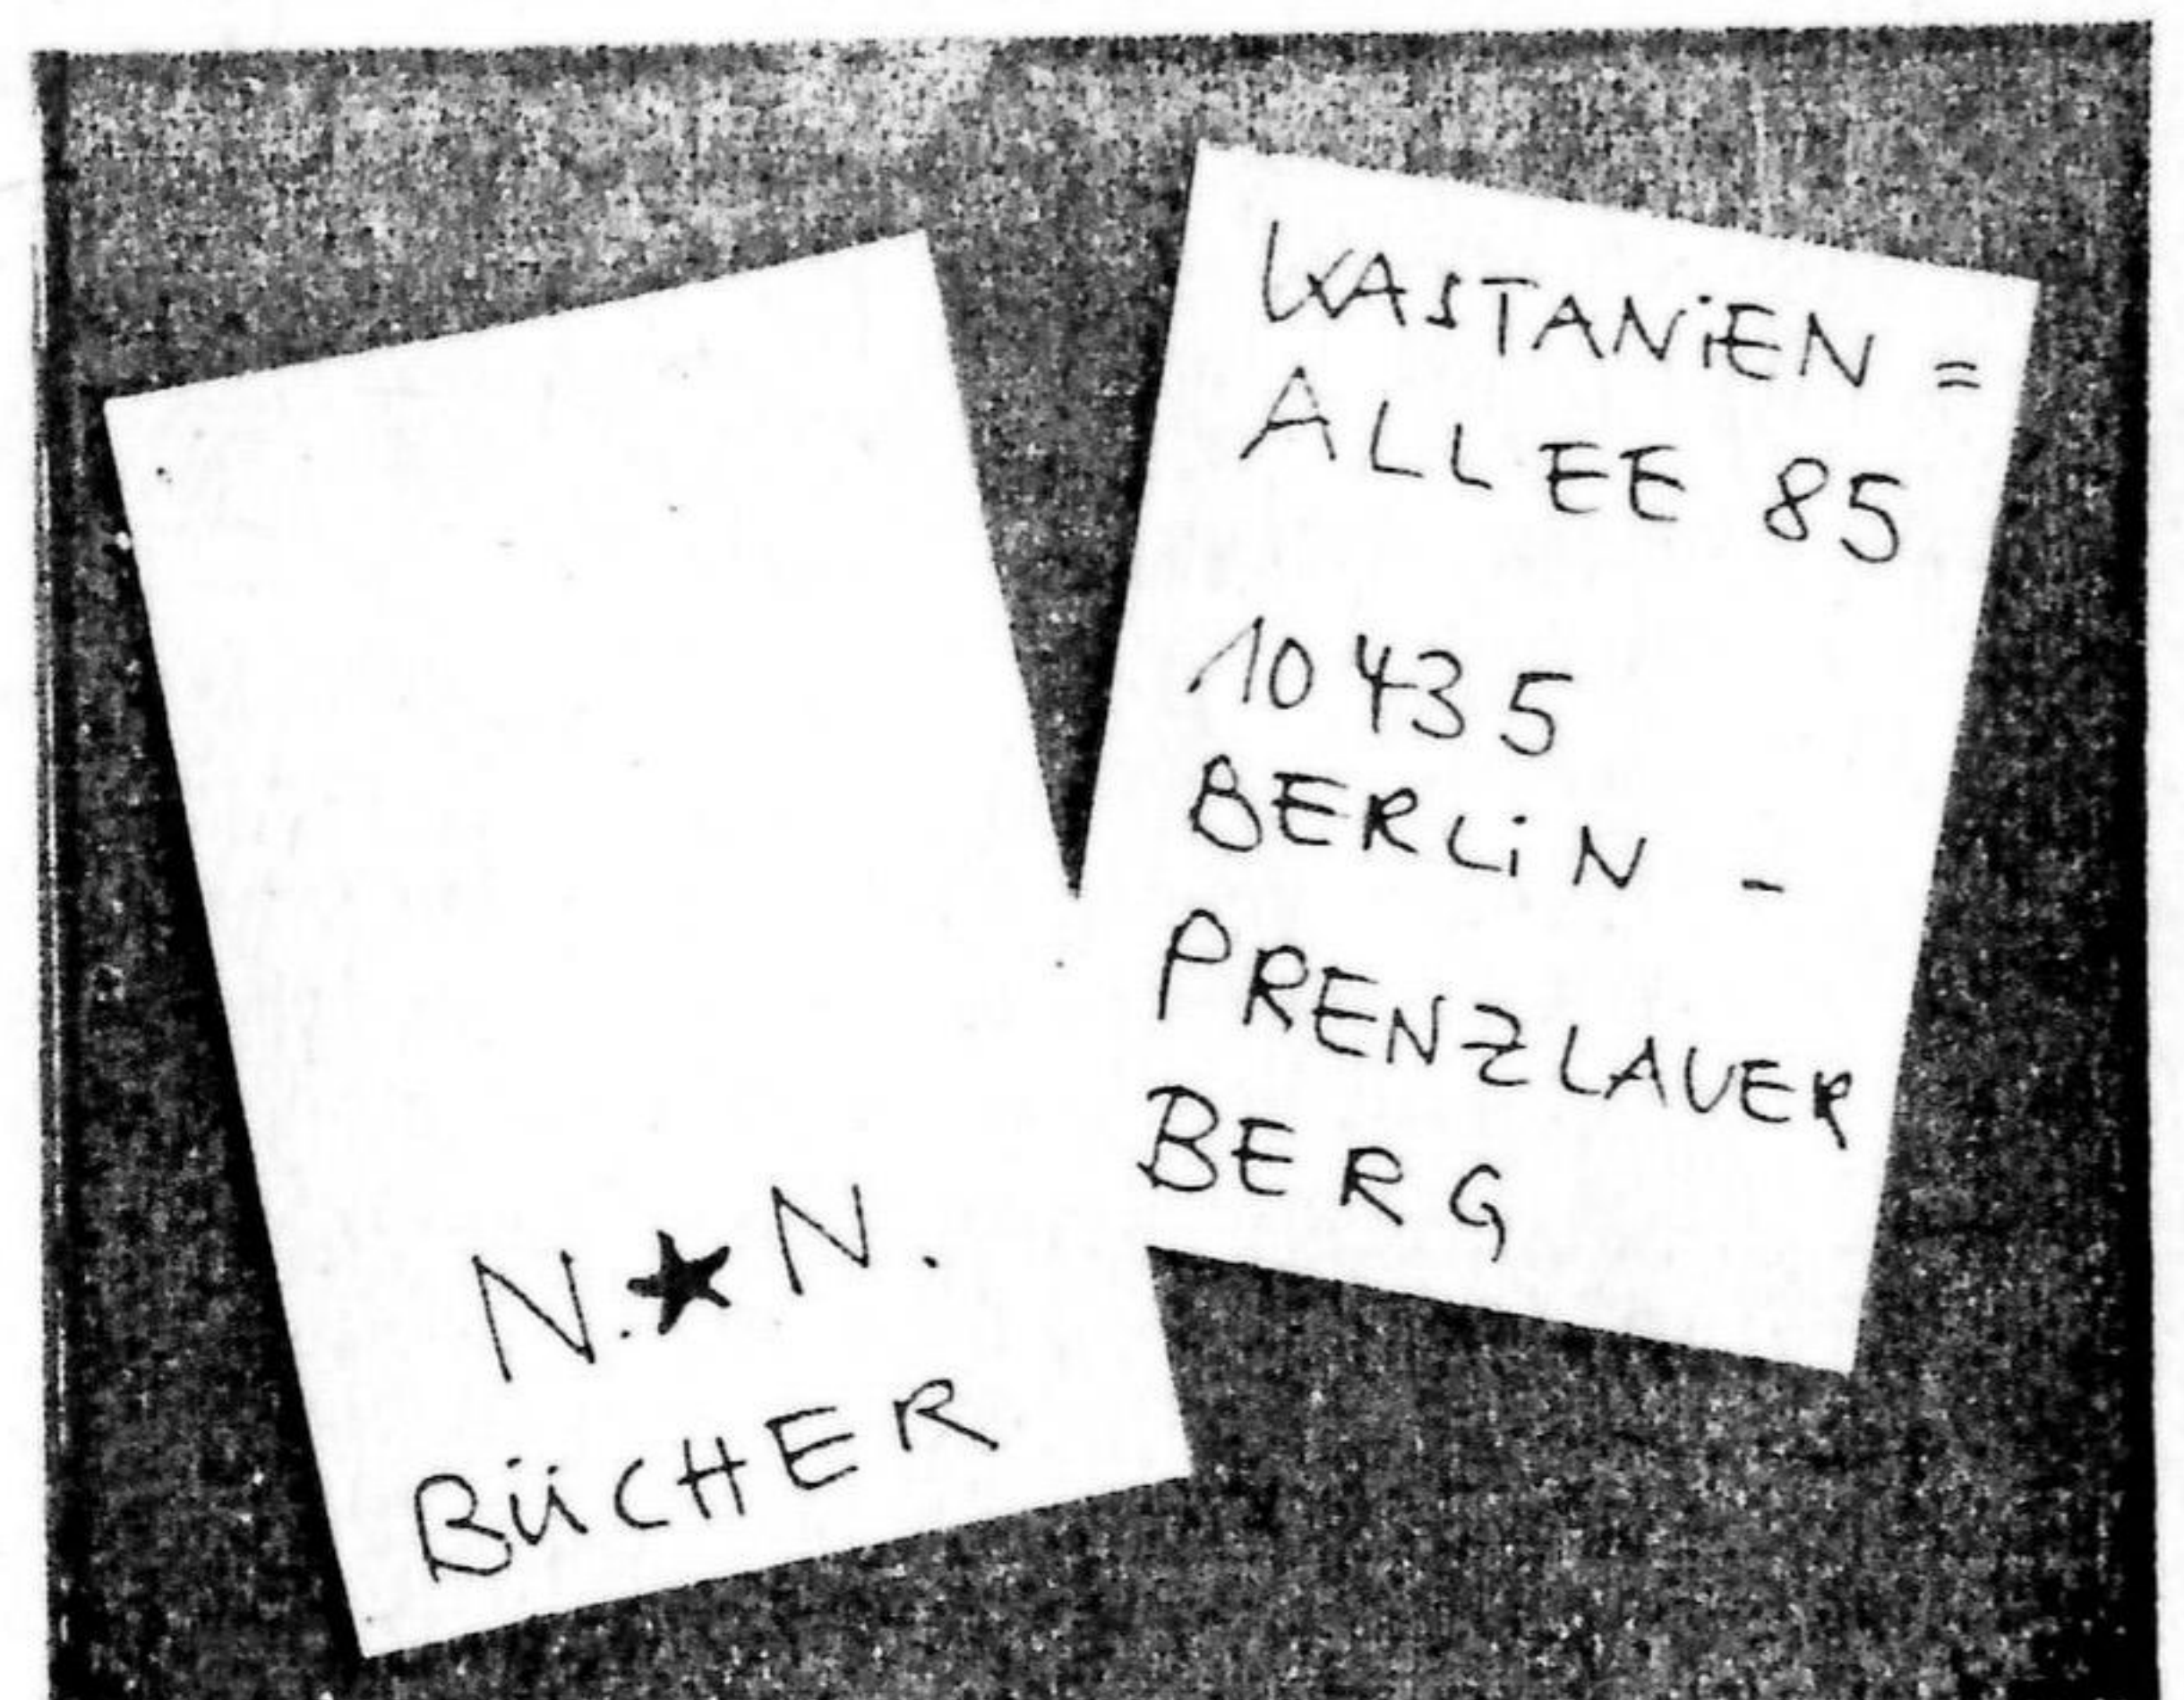 N.★N.
BÜCHER
KASTANiEN =
ALLEE 85
10435
BERLiN -
PRENZLAUER
BERG